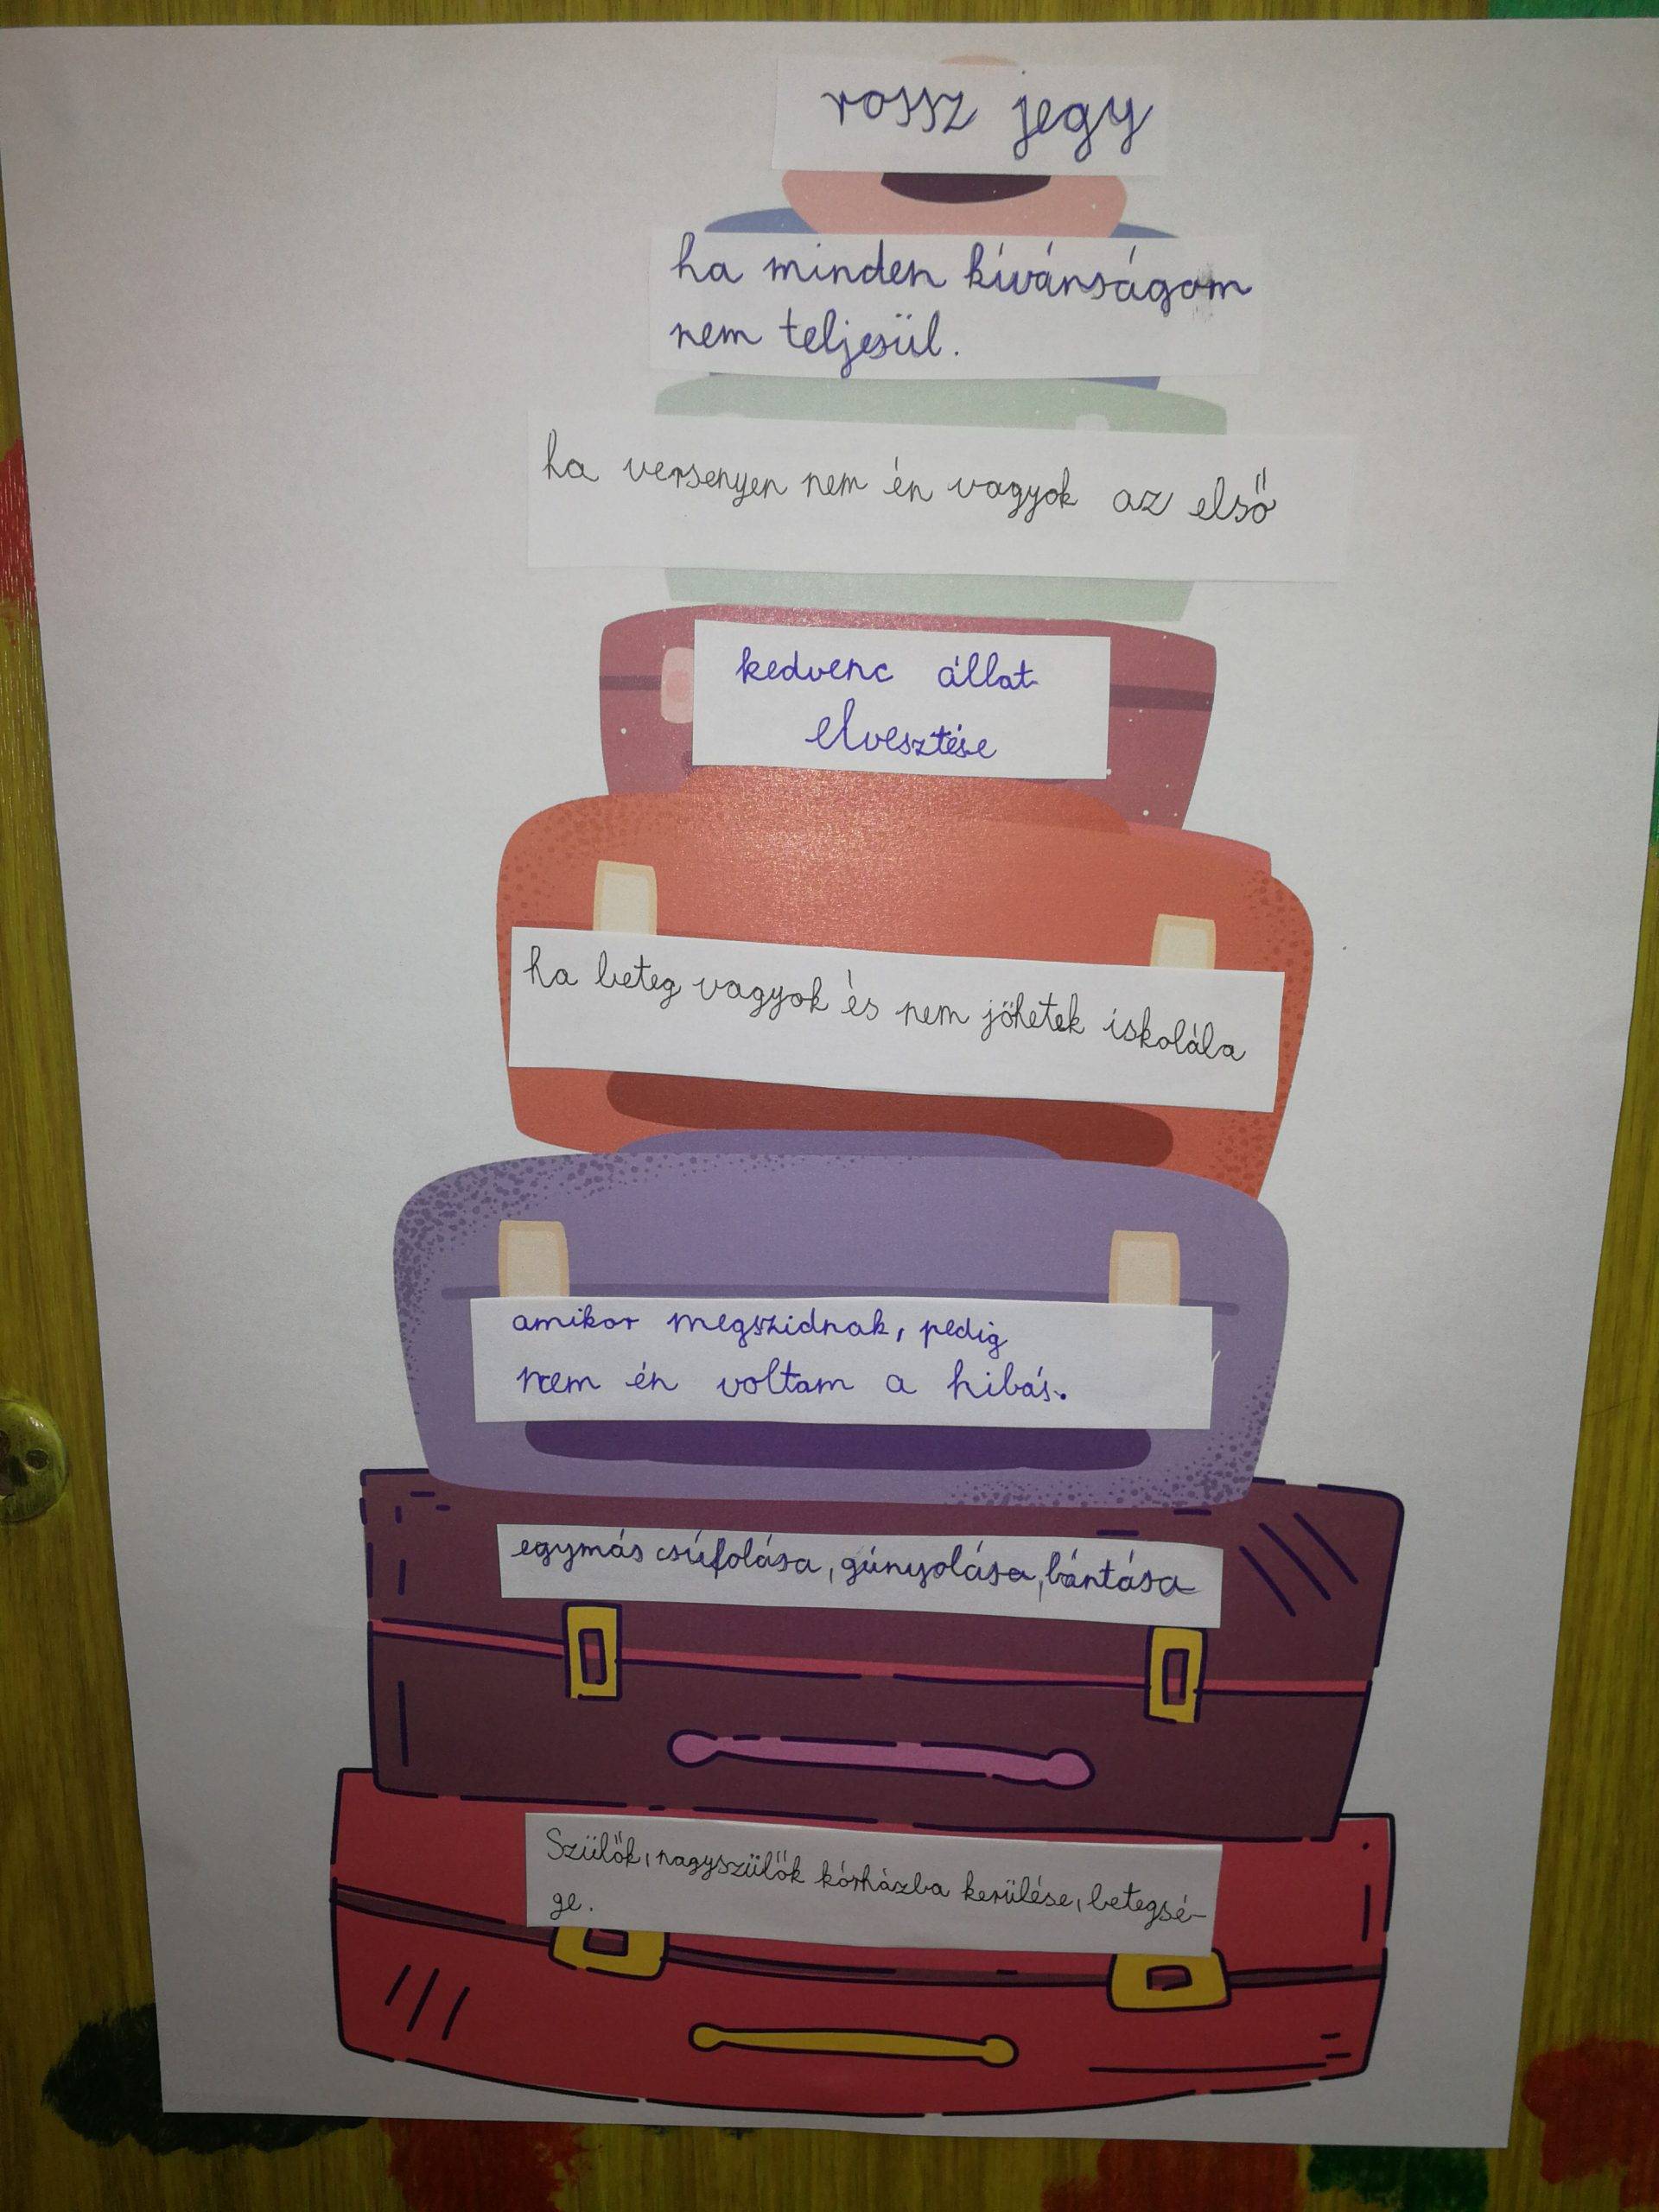 rossz jegy
ha minden kívánságom
nem teljesül.
ha versenyen nem én vagyok az első
kedvenc állat
elvesztése
ha beteg vagyok és nem jöhetek iskolába
amikor megszidnak, pedig
nem én voltam a hibás.
egymás csúfolása, gúnyolása, bántása
Szülők, nagyszülők kórházba kerülése, betegsé-
ge.